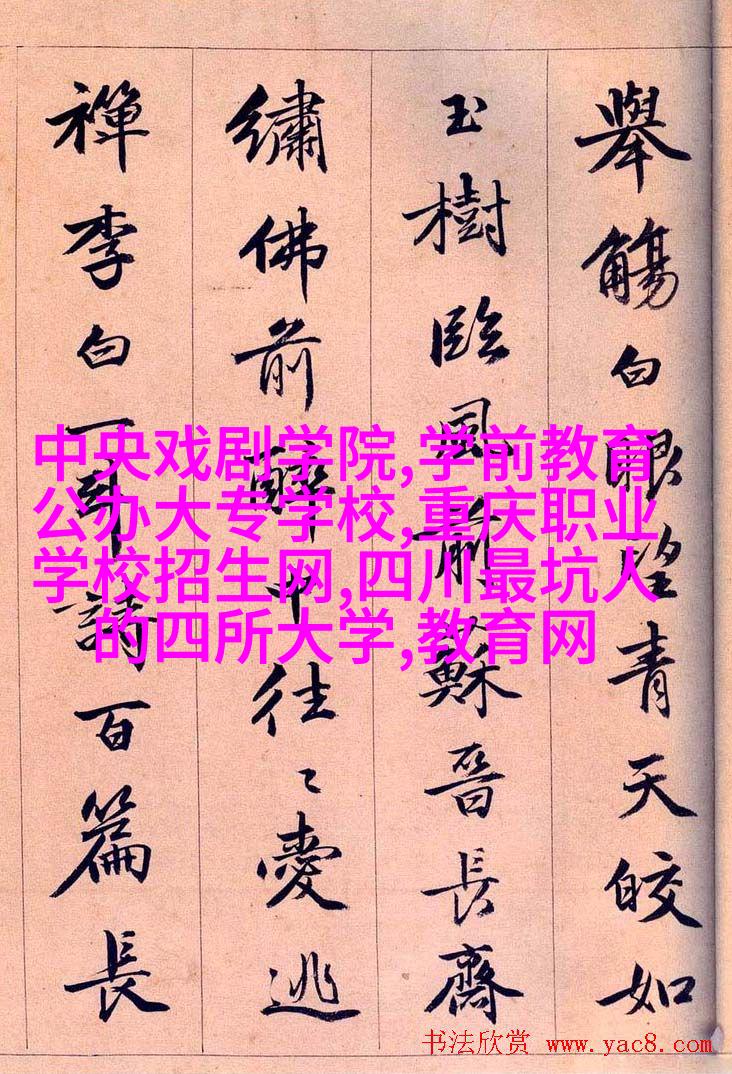 舉觴白眼望青天皎如
玉樹臨風前蘇晉長齋
繡佛前醉中往〻愛逃
禪李白一斗詩百篇長
中央戏剧学院,学前教育
公办大专学校,重庆职业
学校招生网,四川最坑人
的四所大学,教育网
书法欣赏 www.yac8.com